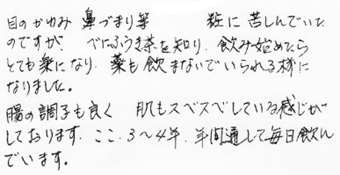 目のかゆみ 鼻づまり等 症に苦しんでいた
のですが べにふうき茶を知り、飲み始めたら
とても楽になり、薬も飲まないでいられる様に
なりました。
腸の調子も良く 肌もスベスベしている感じが
しております。ここ、3〜4年、年間通して毎日飲ん
でいます。